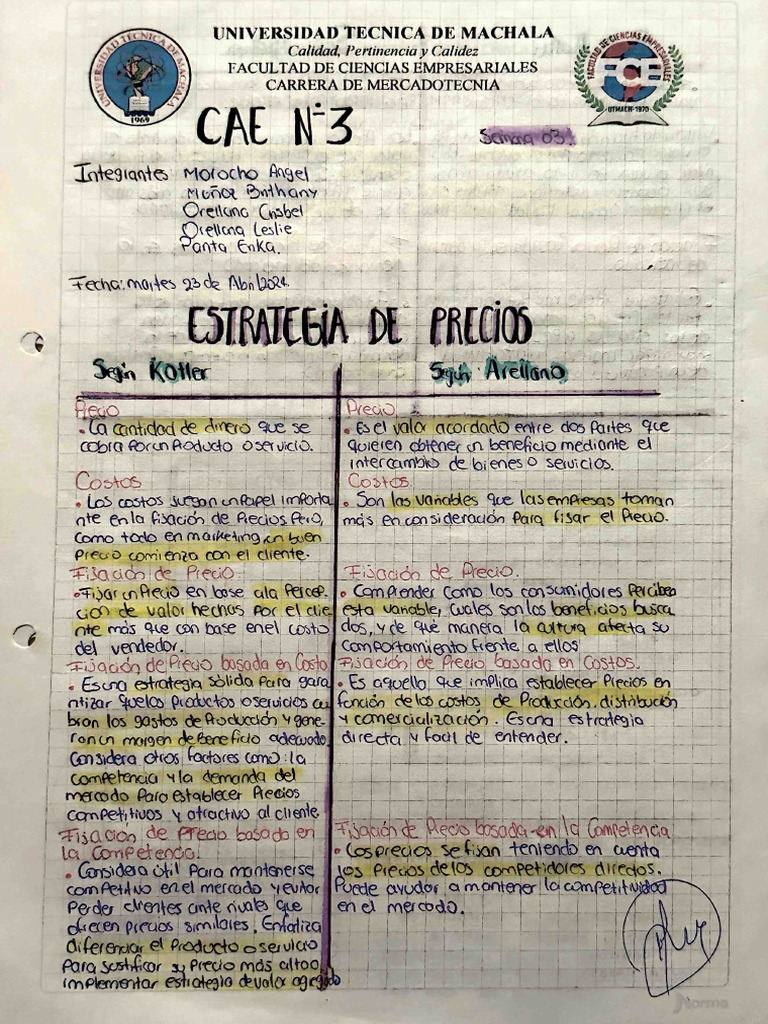 UNIVERSIDAD TECNICA DE MACHALA
Calidad, Pertinencia y Calidez
FACULTAD DE CIENCIAS EMPRESARIALES
CARRERA DE MERCADOTECNIA
UNIVERSIDAD TECNICA DE MACHALA
1969
FACULTAD DE CIENCIAS EMPRESARIALES
FCE
UTMACH-1970
CAE N°3
Semana 03.
Integrantes Morocho Angel
Muñoz Bnthany
Orellana Cristel
Orellana Leslie
Panta Erika.
Fecha: martes 23 de Abril 2024.
ESTRATEGIA DE PRECIOS
Según Kotler
Precio
• La cantidad de dinero que se
cobra por un Producto o servicio.
Costos
• Los costos juegan un papel importa
nte en la fijación de Precios Pero,
como todo en marketing, un buen
Precio comienza con el cliente.
Fijación de Precio.
• Fijar un Precio en base a la Percep-
ción de valor hechas Por el clie
nte más que con base en el costo
del vendedor.
Fijación de Precio basada en Costo
• Es una estrategia sólida Para gara
ntizar que los Productos o servicios cu
bran los gastos de Producción y gene-
ron un margen de beneficio adecuado.
Considera otros factores como: la
competencia y la demanda del
mercado Para establecer Precios
competitivos y atractivo al cliente.
Fijación de Precio basado en
la Competencia.
• Considera útil Para mantenerse
competitivo en el mercado y evitar
Perder clientes ante rivales que
ofrecen precios similares. Enfatiza
diferenciar el Producto o servicio
Para justificar su Precio más alto o
implementar estrategia de valor agregado
Según Arellano
Precio
• Es el valor acordado entre dos Partes que
quieren obtener un beneficio mediante el
intercambio de bienes o servicios.
Costos
• Son las variables que las empresas toman
más en consideración Para fisar el Precio.
Fijación de Precio.
• Comprender como los consumidores Perciben
esta variable, cuales son los beneficios busca
dos, y de qué manera la cultura afecta su
comportamiento frente a ellos
Fijación de Precio basada en Costos.
• Es aquello que implica establecer Precios en
función de los costos de Producción, distribución
y comercialización. Es una estrategia
directa y facil de entender.
Fijación de Precio basada en la Competencia
• Los precios se fijan teniendo en cuenta
los Precios de los competidores directos.
Puede ayudar a mantener la competitividad
en el mercado.
Norma